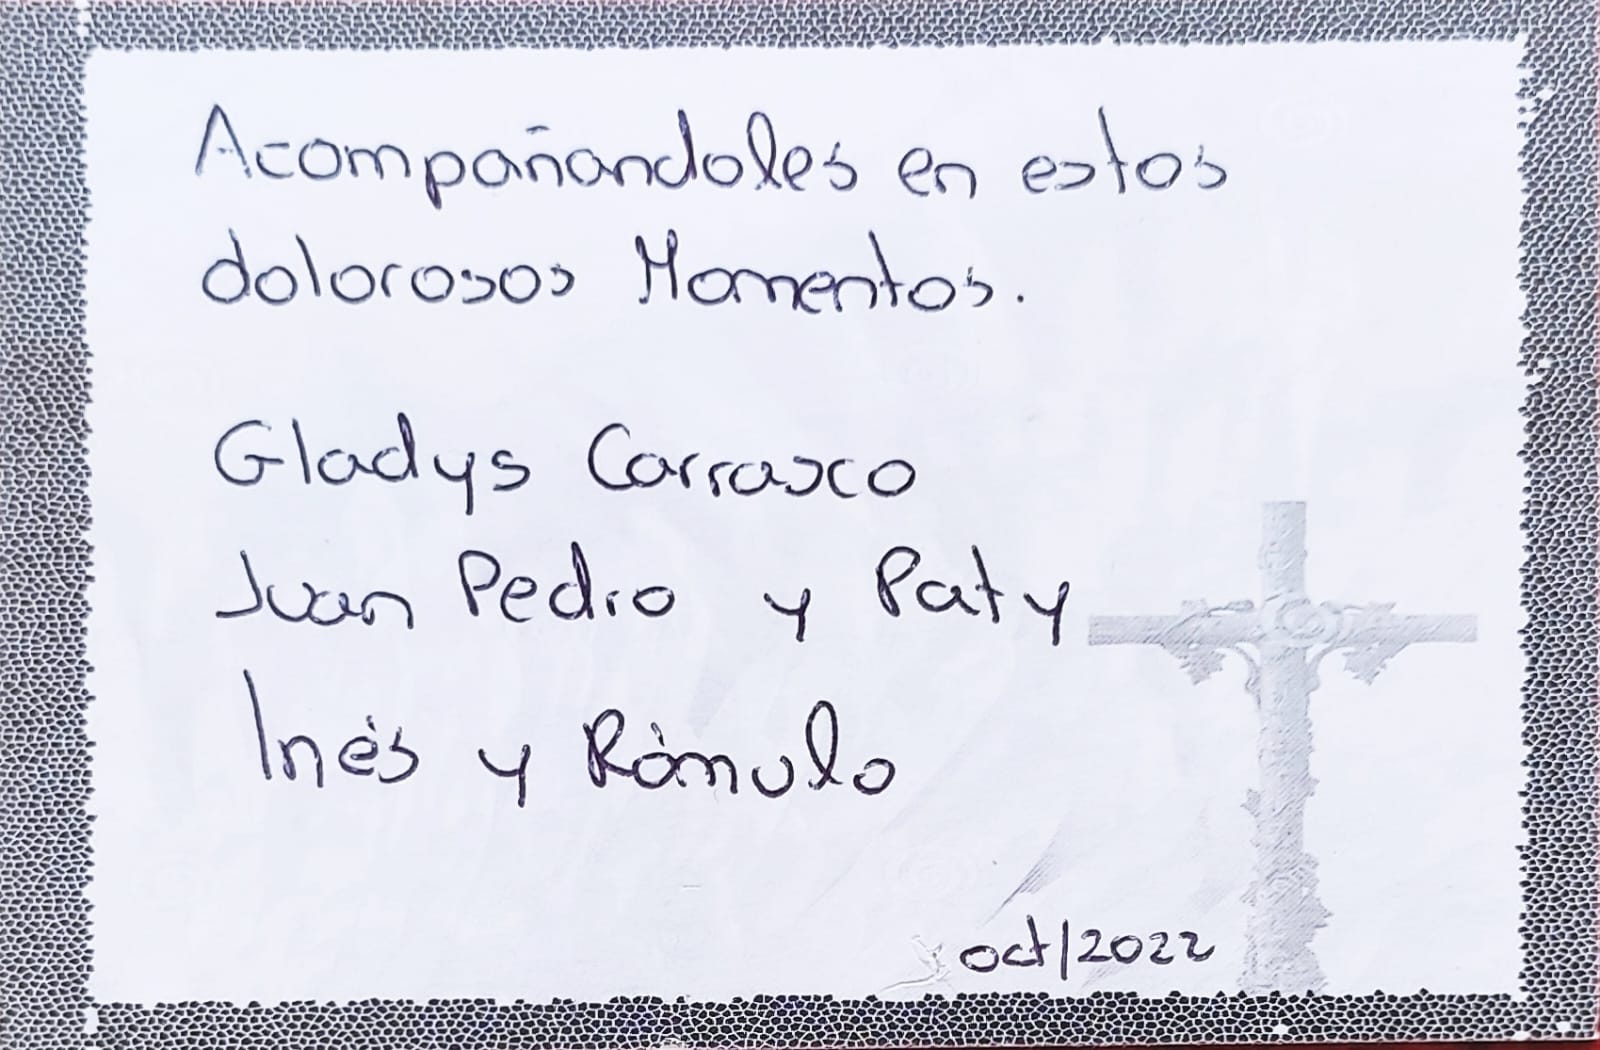 Acompañandoles en estos
dolorosos Momentos.
Gladys Carrasco
Juan Pedro y Paty
Inés y Rómulo
oct/2022